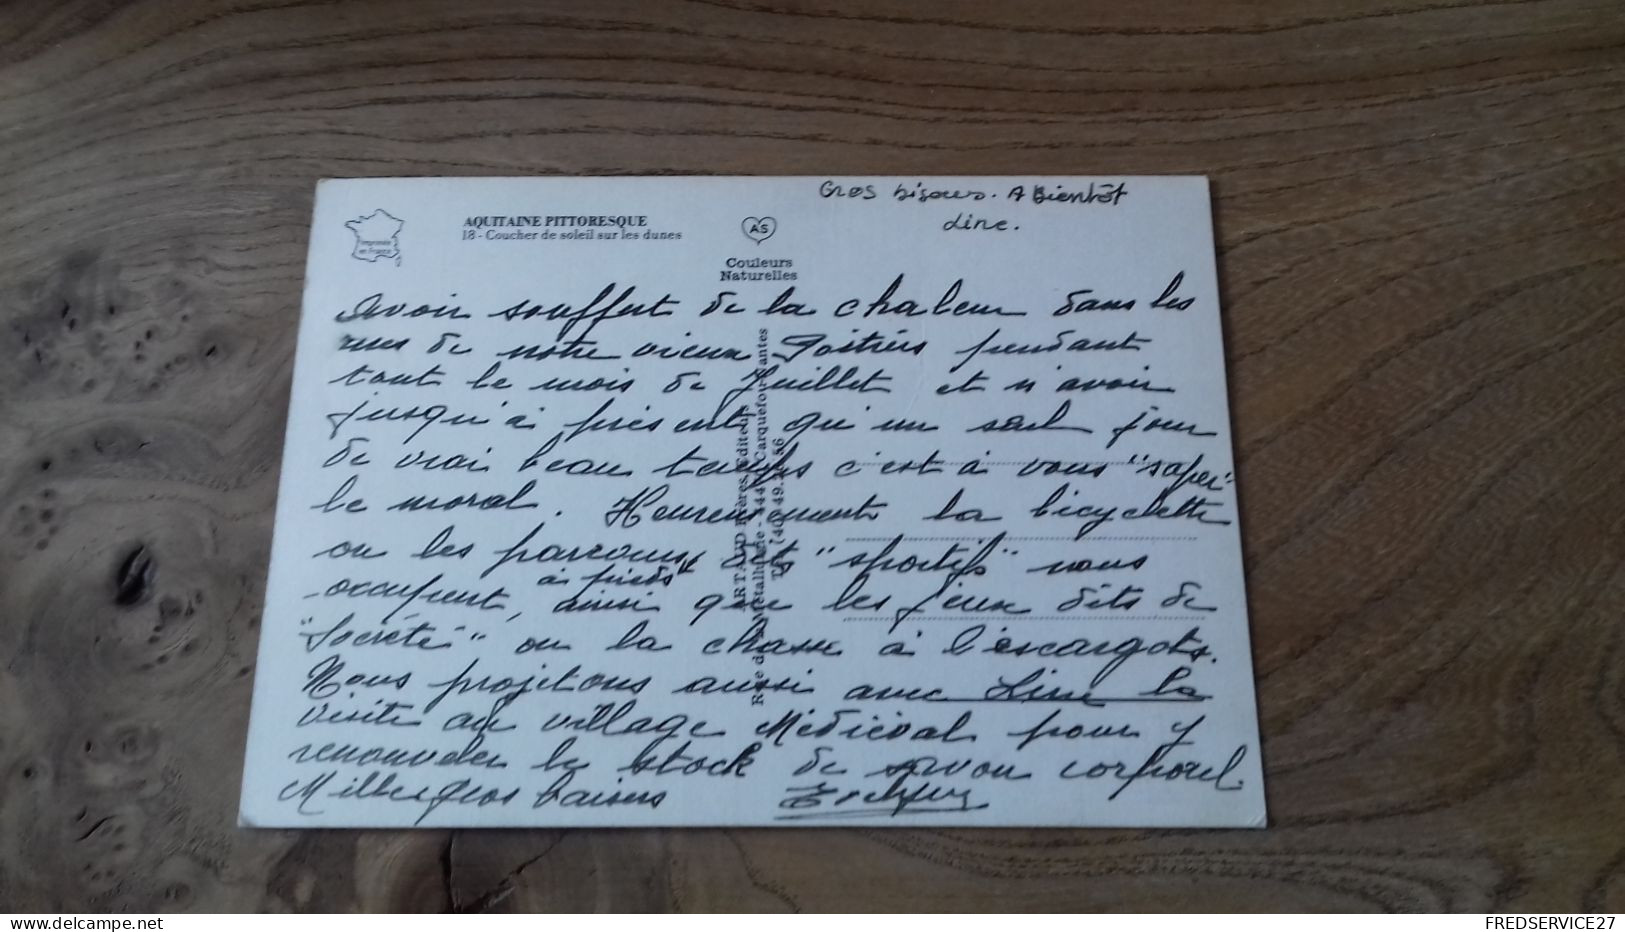 Gros bisous. A Bientôt
Line.
AQUITAINE PITTORESQUE
18 - Coucher de soleil sur les dunes
Imprimée
en France
AS
Couleurs
Naturelles
Avoir souffert de la chaleur dans les
rues de notre vieux Poitiers pendant
tout le mois de Juillet et n'avoir
jusqu'à présent qu'un seul jour
de vrai beau temps c'est à vous "saper"
le moral. Heureusement la bicyclette
ou les parcours "sportifs" nous
à pieds
occupent, ainsi que les jeux dits de
"Société" ou la chasse à l'escargots.
Nous projetons aussi avec Line la
visite au village Médiéval pour y
renouveler le stock de savon corporel.
Mille gros baisers
ARTAUD Frères, Editeurs
Rue de la Métallurgie - Carquefou-Nantes